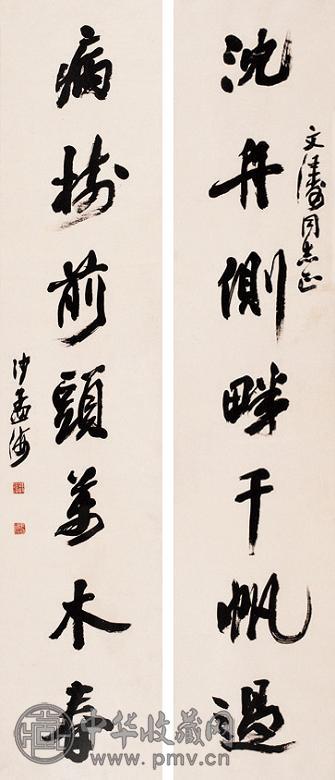 沈舟側畔千帆過
文同志正
病樹前頭萬木春
沙孟海
中华收藏网
www.pmv.cn